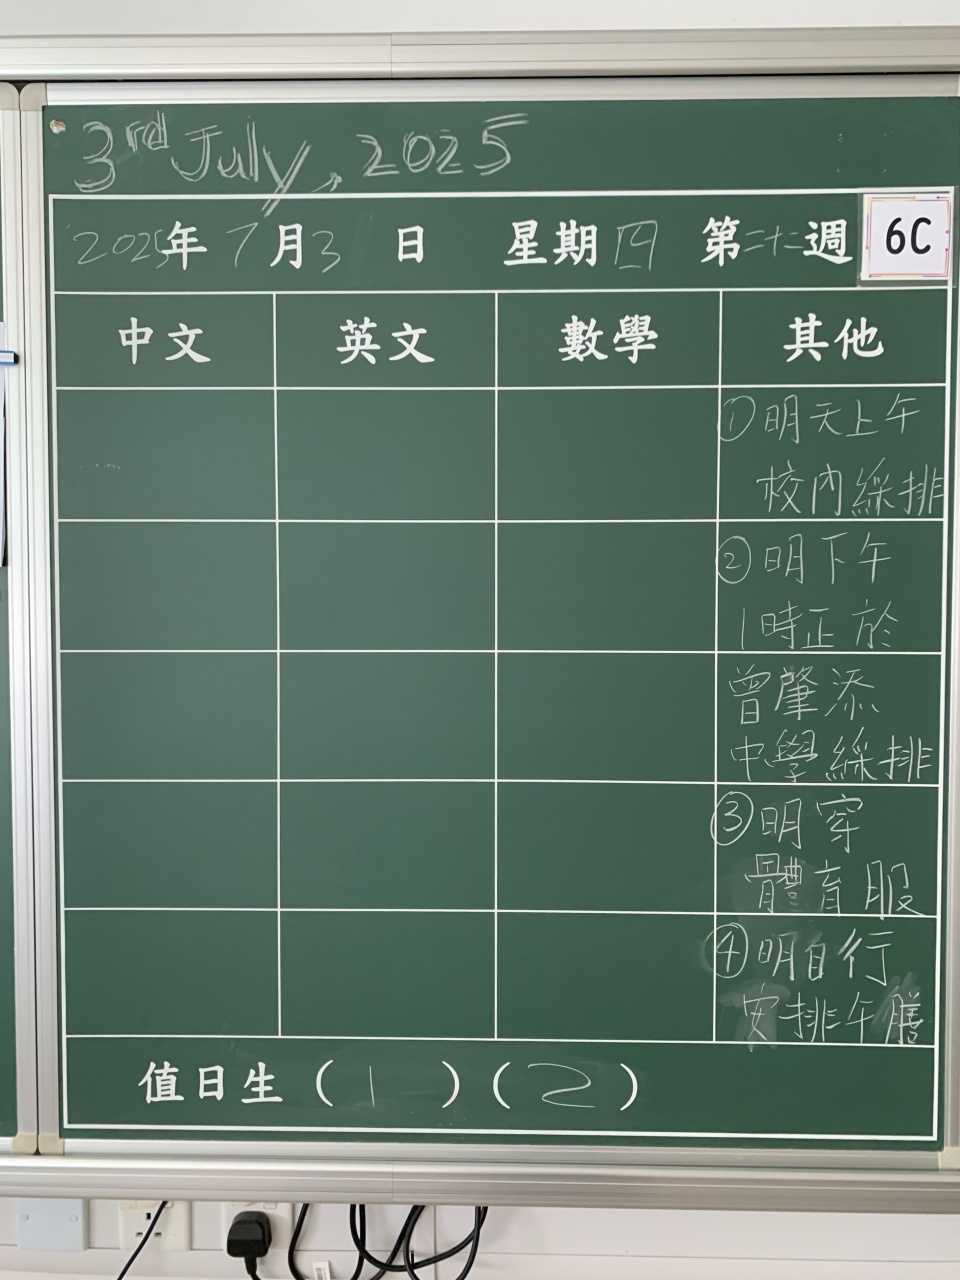 3rd July, 2025
2025年7月3日 星期四 第二十二週 6C
中文 英文 數學 其他
①明天上午
校內綵排
②明下午
1時正於
曾肇添
中學綵排
③明穿
體育服
④明自行
安排午膳
值日生(1)(2)